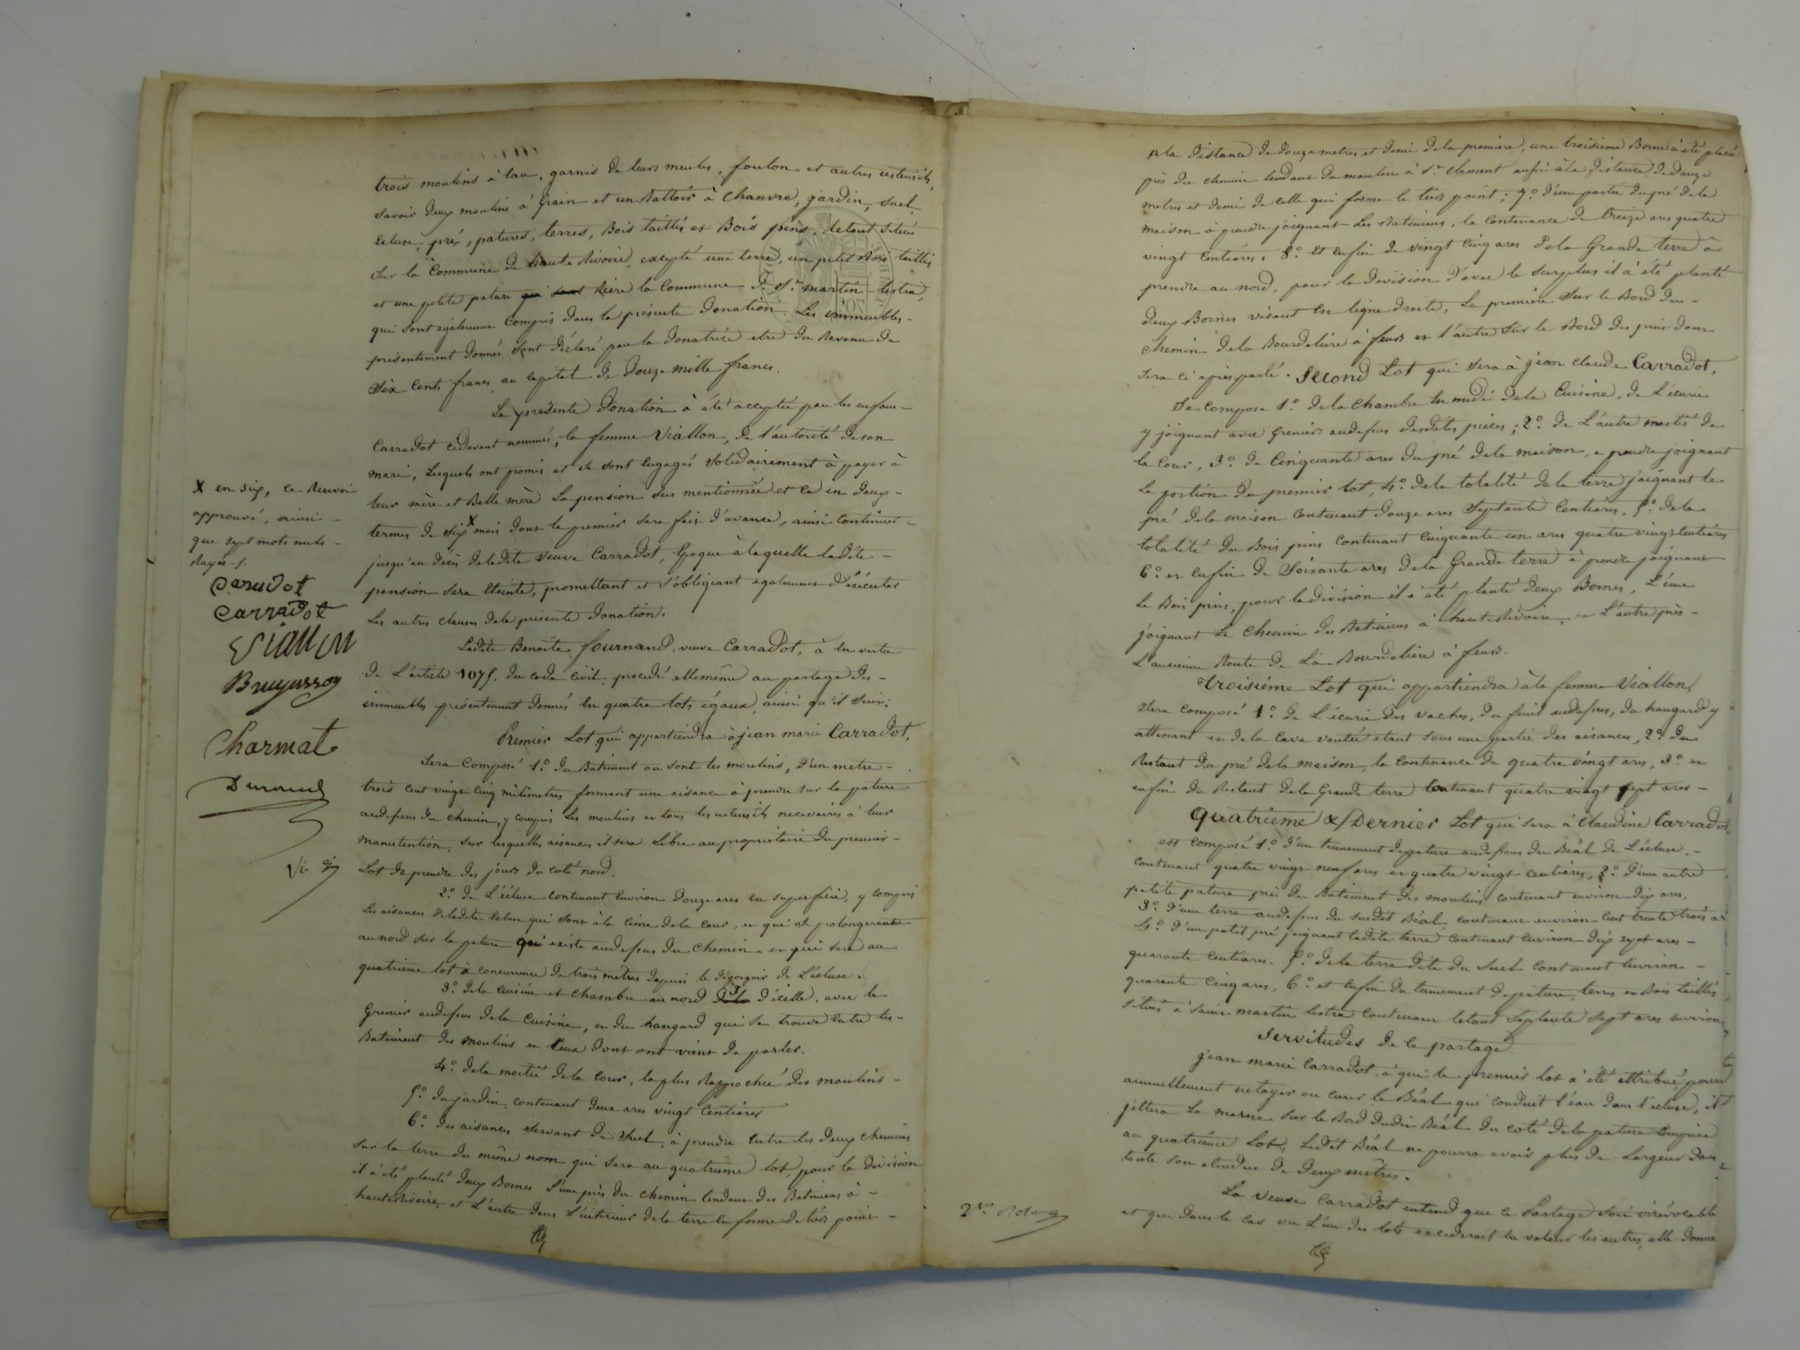 trois moulins à eau, garnis de leurs meules, foulon et autres ustensils,
savoir deux moulins à grain et un Battoir à chanvre, jardin, suel,
écluse, pré, patures, terres, Bois taillis et Bois pins, le tout situés
sur la Commune de haute Rivoire, excepté une terre, un petit Bois taillis
et une petite pature qui sont Rière la Commune de St. martin-lestra,
qui sont également compris dans la présente Donation. Les immeubles-
présentement donnés sont déclaré par la Donatrice etre du Revenu de
Six Cents francs, au capital de Douze mille francs.
La présente Donation à été acceptée par les enfans-
Carradot cidevant nommés, la femme Viallon, de l'autorité de son
mari, Lesquels ont promis et se sont engagés solidairement à payer à
leur mère et Belle mère La pension sus mentionnée et ce en deux-
termes de Six X mois dont le premier sera fait d'avance, ainsi continuer-
jusqu'au décès de ladite veuve Carradot, Epoque à laquelle ladite-
pension sera éteinte, promettant et s'obligeant également d'éxécuter
Les autres clauses dela présente Donation.
Ladite Benoite fournand, veuve Carradot, à en vertu
de L'article 1075. du code Civil, procédé ellemême au partage des-
immeubles présentement donnés En quatre lots égaux, ainsi qu'il suit:
Premier Lot qui appartiendra à jean marie Carradot,
Sera Composé 1.º du Batiment ou sont les moulins, d'un metre-
trois cent vingt cinq milimetres formant une aisance à prendre sur la pature
audessous du chemin, y compris Les moulins en tous les ustensils necessaires à leur
manutention, sur lesquelles aisances il sera Libre au propriétaire du premier-
Lot de prendre des jours du coté nord.
2.º de L'écluse contenant environ Douze ares en superficie, y compris
Les aisances deladite écluse qui sont à la cime dela cour, et qui se prolongeront
au nord sur la pature qui existe audessous du Chemin et qui sera au
quatrieme lot à concurrence de trois mètres depuis le dégorgeoir de L'écluse.
3.º dela Cuisine et chambre au nord d'icelle, avec le
Grenier audessus dela Cuisine, et du hangard qui se trouve Entre les-
Batiment des moulins et Ceux dont on vient de parler.
4.º dela moitié dela Cour, la plus Rapprochée des moulins-
5.º du jardin, contenant deux ares vingt Centiares
6.º des aisances servant de Suel, à prendre Entre les deux chemins
sur la terre du même nom qui sera au quatrieme lot, pour la division
il à été planté deux Bornes L'une près du chemin tendant des Batimens à-
hauterivoire, et L'autre dans L'intérieur de la terre En forme de tiers point-
X en six, ce Renvoi
approuvé, ainsi-
que sept mots nuls-
Rayés./.
Caradot
Carradot
Viallon
Bruyasson
Charmat
Durand
à la Distance de Douze metres et demi de la première, une troisieme Borne à été placée
près du chemin tendant du moulin à St. Clement aussi à la distance de Douze
metres et demi de celle qui forme le tiers point; 7.º d'une partie du pré de la
maison à prendre joignant Les Batimens, la contenance de treize ares quatre
vingt Centiares, 8.º Et enfin de vingt Cinq ares dela Grande terre à
prendre au nord, pour la Division d'avec le surplus il à été planté
deux Bornes visant En ligne droite, La première sur le Bord du-
chemin dela Bourdeliere à feurs et l'autre sur le Bord des pins dont
sera ci après parlé. Second Lot qui sera à jean claude Carradot,
Se Compose 1.º dela Chambre En midi dela Cuisine, de L'écurie
y joignant avec Greniers audessus desdites pièces; 2.º de L'autre moitié de
la Cour, 3.º de Cinquante ares du pré dela maison, à prendre joignant
Le portion du premier lot, 4.º dela totalité dela terre joignant le
pré dela maison Contenant Douze ares Septante Centiares. 5.º dela
totalité du Bois pins Contenant Cinquante un ares quatre vingt Centiares
6.º et Enfin de Soixante ares dela Grande terre à prendre joignant
Le Bois pins, pour la division il à été planté deux Bornes, L'une
joignant Le Chemin des Batimens à hauteRivoire, et L'autre près-
L'ancienne Route de La Bourdeliere à feurs.
troisiéme Lot qui appartiendra à la femme Viallon,
Sera composé 1.º de L'écurie des vaches, du fenil audessus, du hangard y
attenant et de la Cave voutée étant sous une partie des aisances, 2.º du
Restant du pré dela maison, la Contenance de quatre vingt ares, 3.º et
enfin du Restant dela Grande terre Contenant quatre vingt sept ares-
Quatrieme & Dernier Lot qui sera à Claudine Carradot
est composé 1.º d'un tennement depature audessous du Béal de L'écluse,-
Contenant quatre vingt neuf ares et quatre vingt centiares, 2.º d'une autre
petite pature près du Batiment des moulins contenant environ dix ares,
3.º d'une terre audessus du susdit Béal contenant environ Cent trente trois ar
4.º d'un petit pré joignant ladite terre contenant Environ dix sept ares-
quarante Centiares. 5.º de la terre dite du Suel Contenant Environ-
quarante Cinq ares, 6.º et Enfin du tennement depature, terres et Bois taillis
situés à Saint martin lestra Contenant letout Septante Sept ares environ
Servitudes de ce partage
jean marie Carradot, à qui le premier lot à été attribué, pourra
annuellement netoyer ou curer le Béal qui conduit l'eau dans l'écluse, il
jettera La marne sur le Bord dudit Béal du coté dela pature Comprise
au quatrieme Lot, Ledit Béal ne pourra avoir plus de Largeur dans
toute son étendue de deux mètres.
La veuve Carradot entend que ce Partage soit irrévocable
et que dans le cas ou L'un des lots excederait en valeur les autres, elle donne